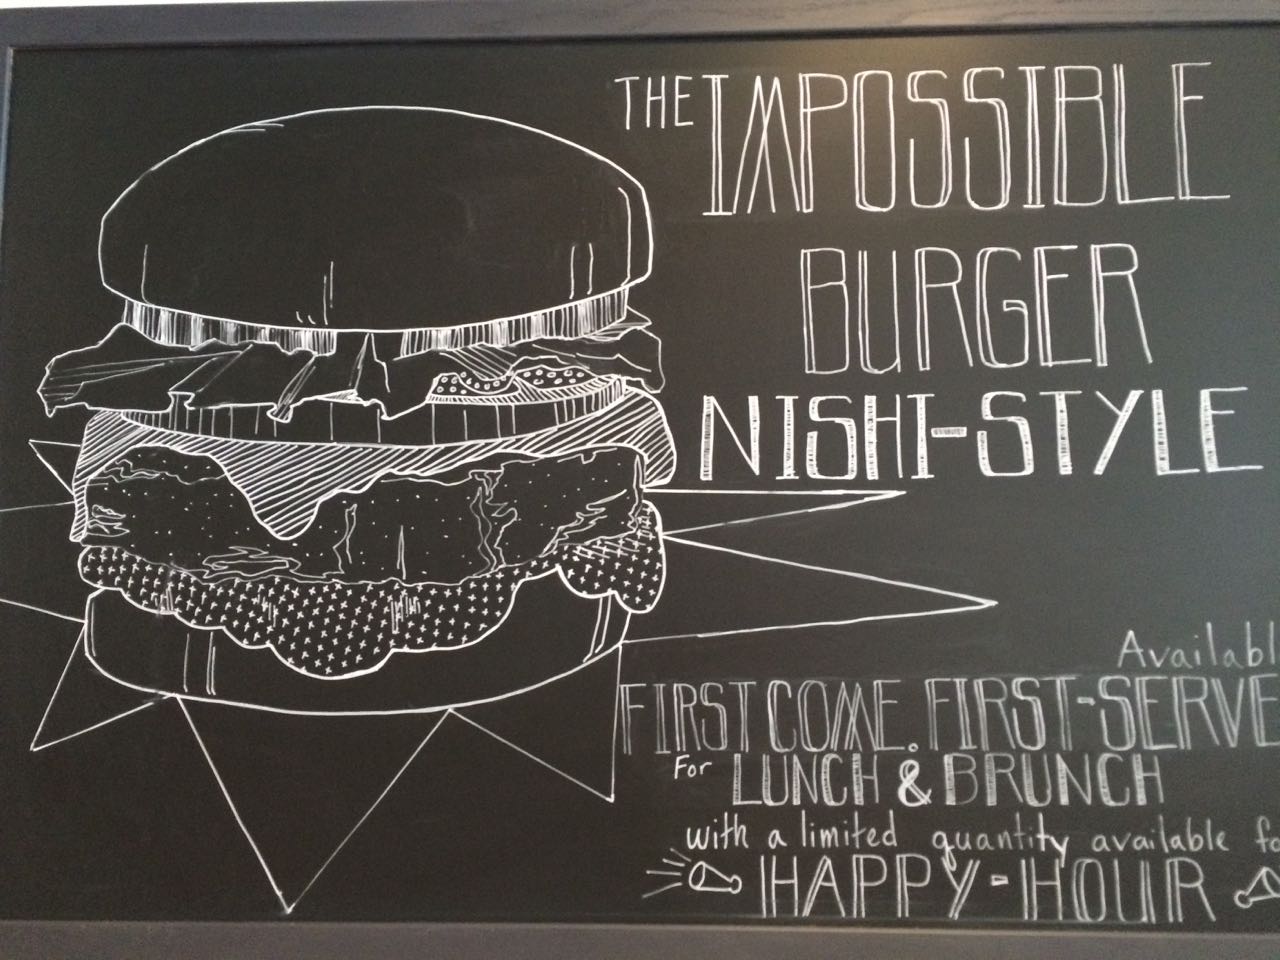 THE IMPOSSIBLE
BURGER
NISHI-STYLE
Availabl
FIRST COME, FIRST-SERVE
For LUNCH & BRUNCH
with a limited quantity available fo
HAPPY-HOUR